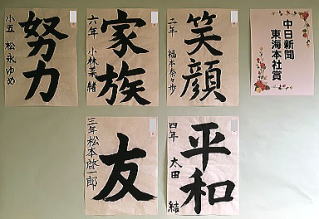 努力
小五 松永ゆめ
家族
六年 小林菜緒
笑顔
二年 福本奈々歩
中日新聞
東海本社賞
友
三年 松本啓一郎
平和
四年 太田 結